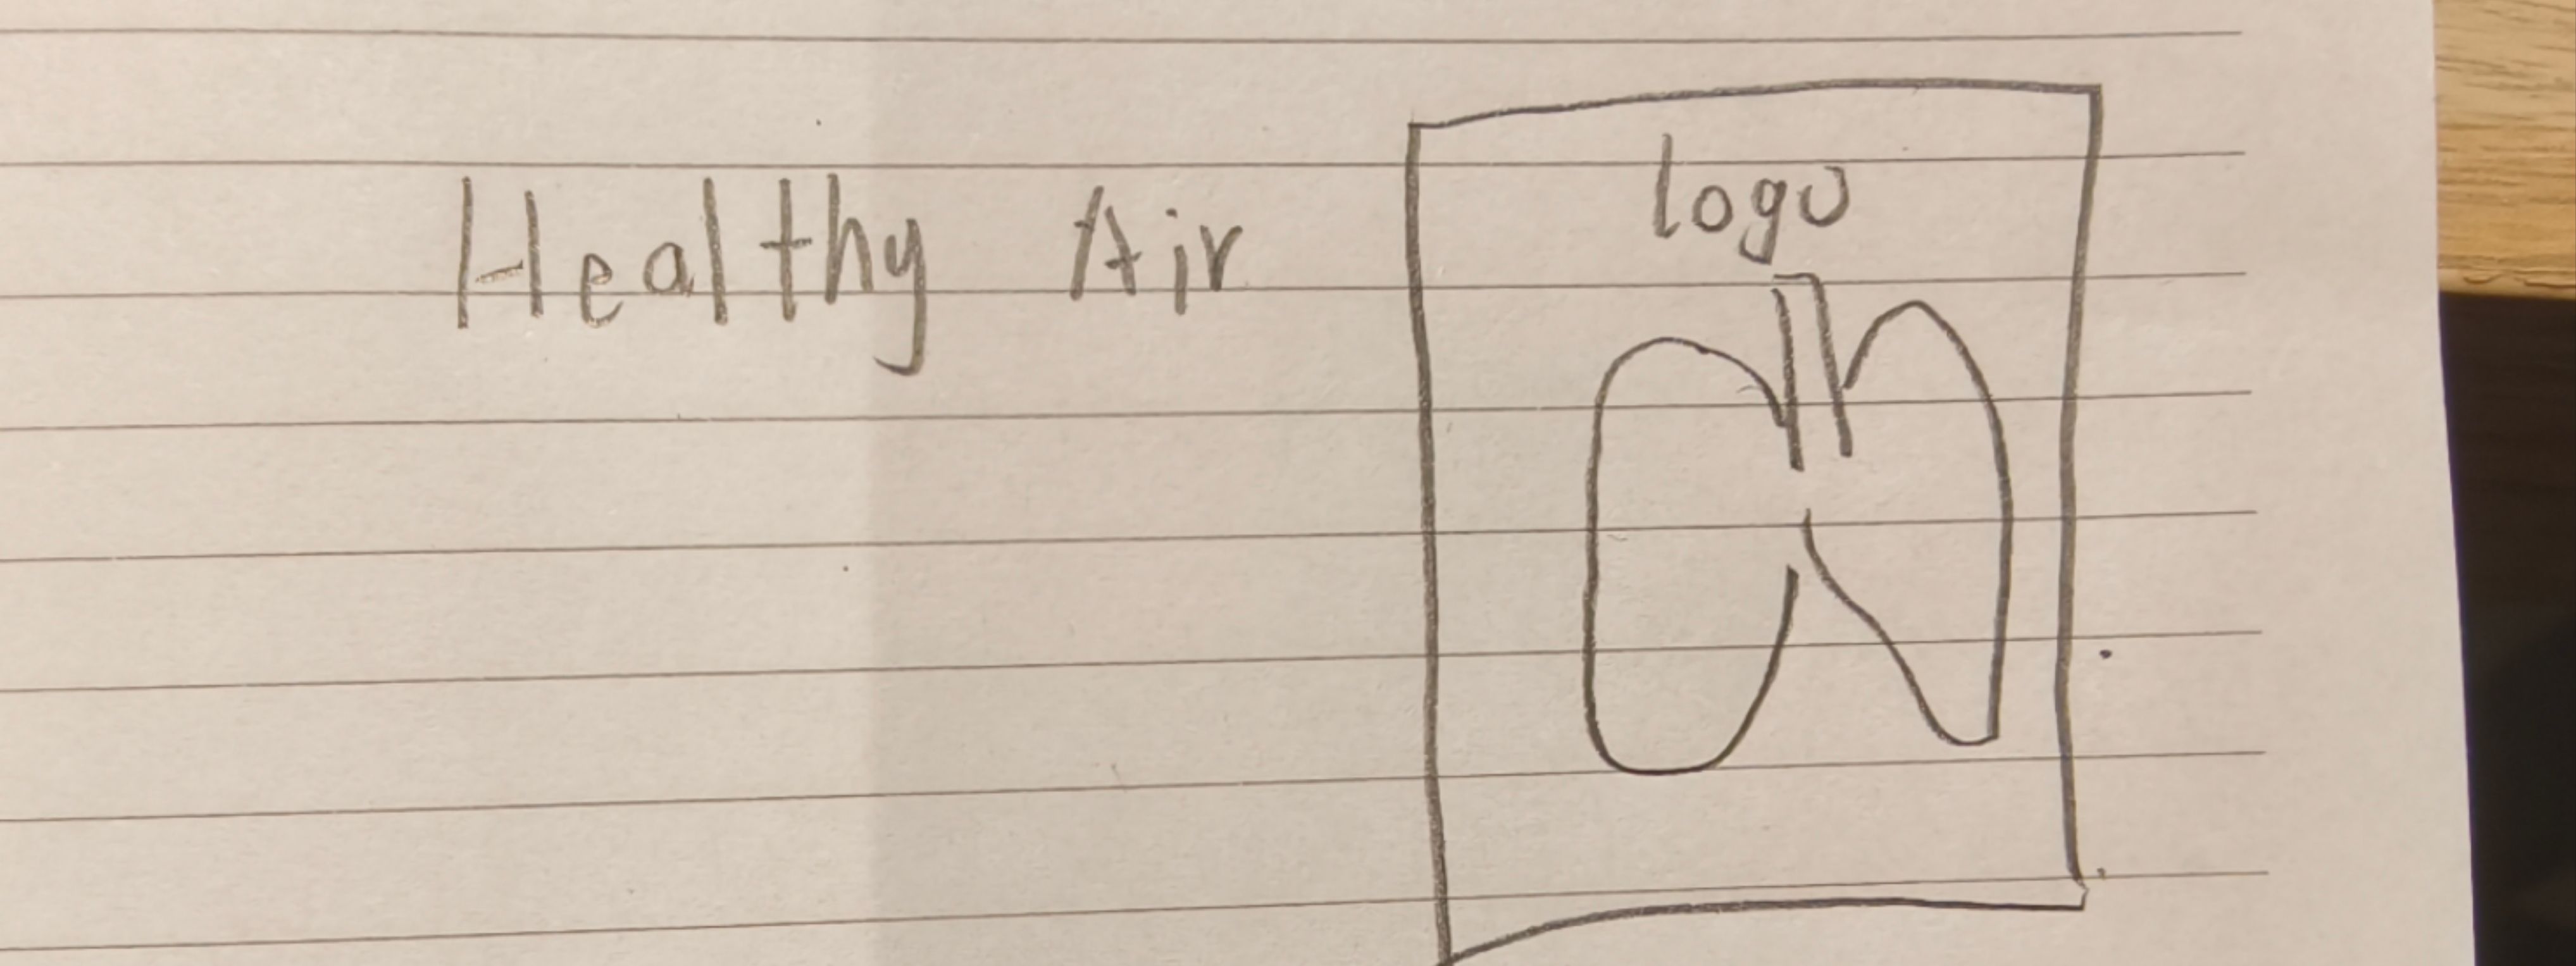 Healthy Air
logo